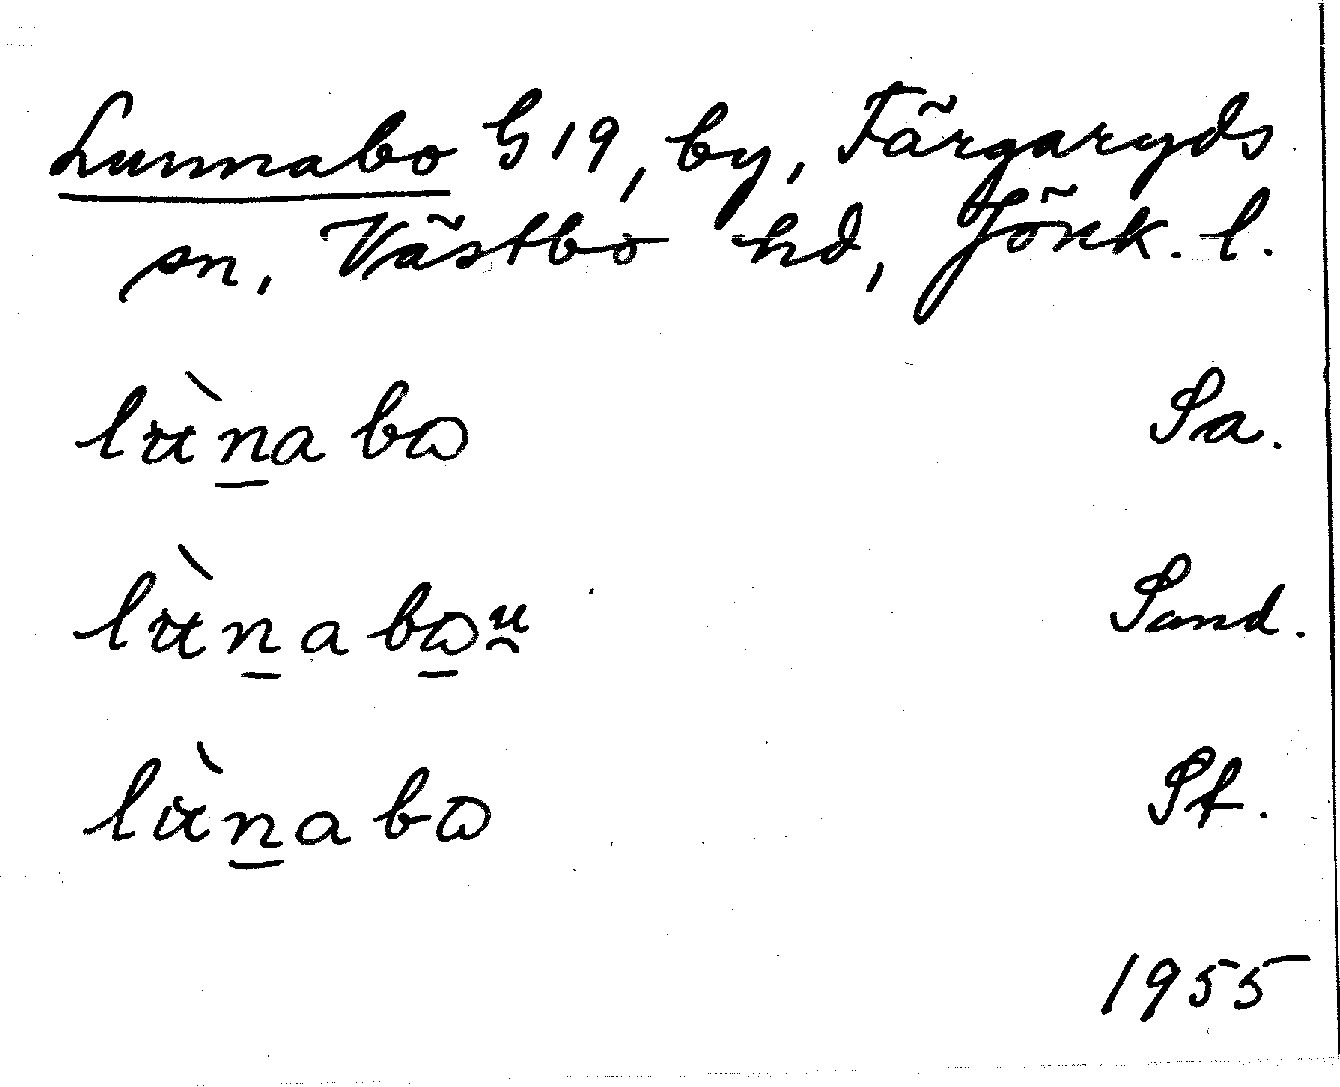 Lunnabo G 19, by, Färgaryds
sn, Västbo hd, Jönk. l.
lùn̲abɷ Sa.
lùn̲abɷ̲u̯ Sand.
lùn̲abɷ St.
1955